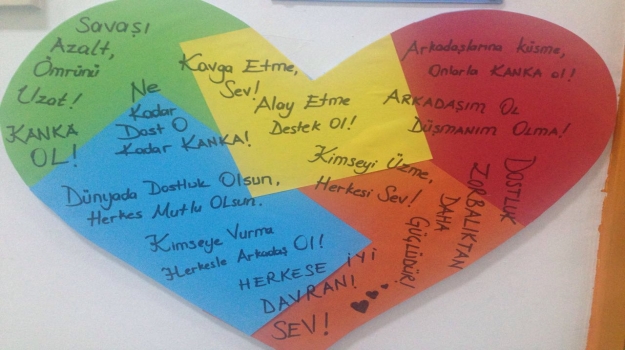 Savaşı
Azalt,
Ömrünü
Uzat!
KANKA
OL!
Ne
Kadar
Dost O
Kadar KANKA!
Kavga Etme,
Sev!
Alay Etme
Destek Ol!
Arkadaşlarına Küsme,
Onlarla KANKA ol!
ARKADAŞIM OL
DÜŞMANIM OLMA!
Kimseyi Üzme,
Herkesi Sev!
DOSTLUK
ZORBALIKTAN
DAHA
GÜÇLÜDÜR!
Dünyada Dostluk Olsun,
Herkes Mutlu OLsun.
Kimseye Vurma
Herkesle Arkadaş Ol!
HERKESE İYİ
DAVRAN!
SEV!